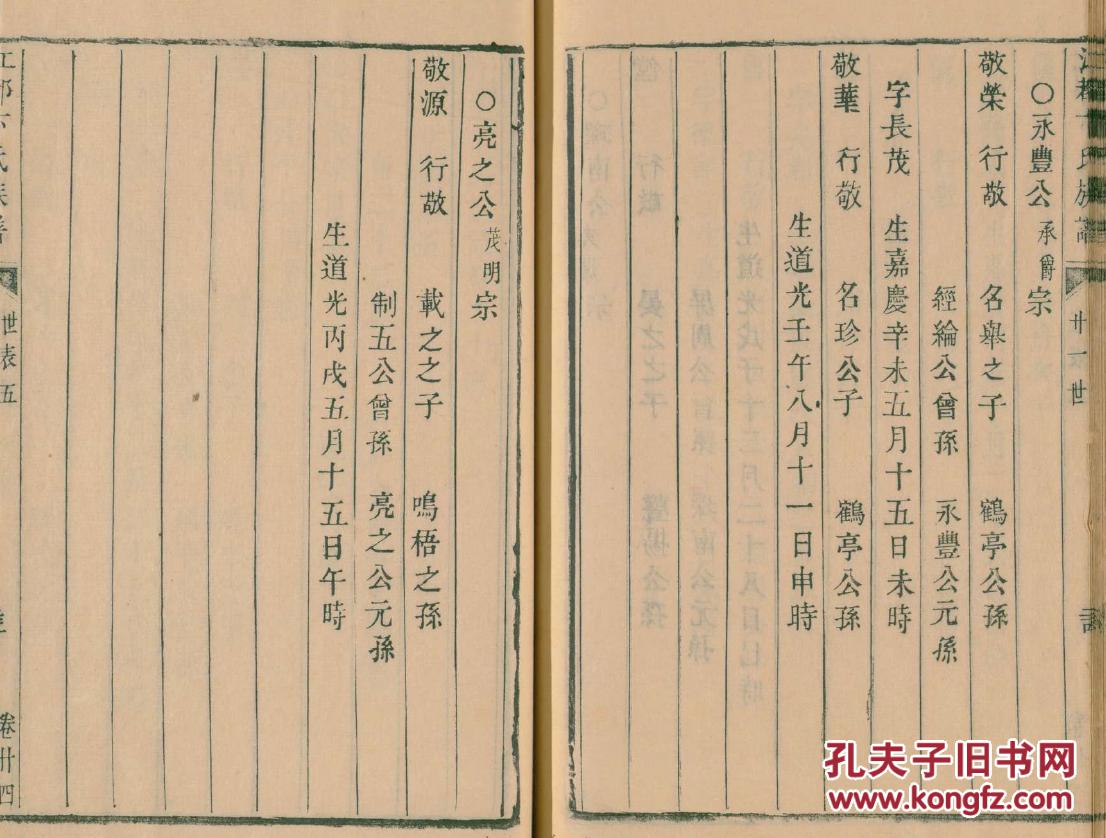 氏族譜
廿一世
○永豐公承爵宗
敬榮 行敬 名舉之子 鶴亭公孫
經綸公曾孫 永豐公元孫
字長茂 生嘉慶辛未五月十五日未時
敬華 行敬 名珍公子 鶴亭公孫
生道光壬午八月十一日申時
○亮之公茂明宗
敬源 行敬 載之之子 鳴梧之孫
制五公曾孫 亮之公元孫
生道光丙戌五月十五日午時
世表五
卷廿四
孔夫子旧书网
www.kongfz.com